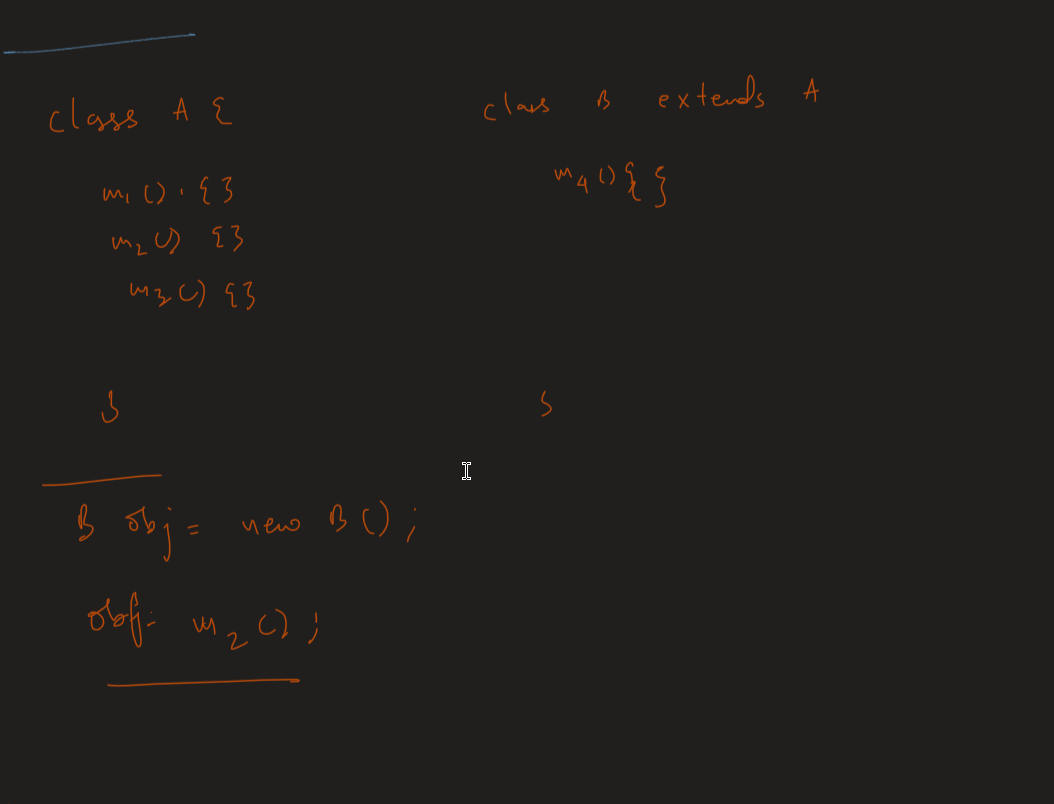 class A {
m1() . {}
m2() {}
m3() {}
}
class B extends A
m4() { }
}
B obj = new B();
obj= m2();